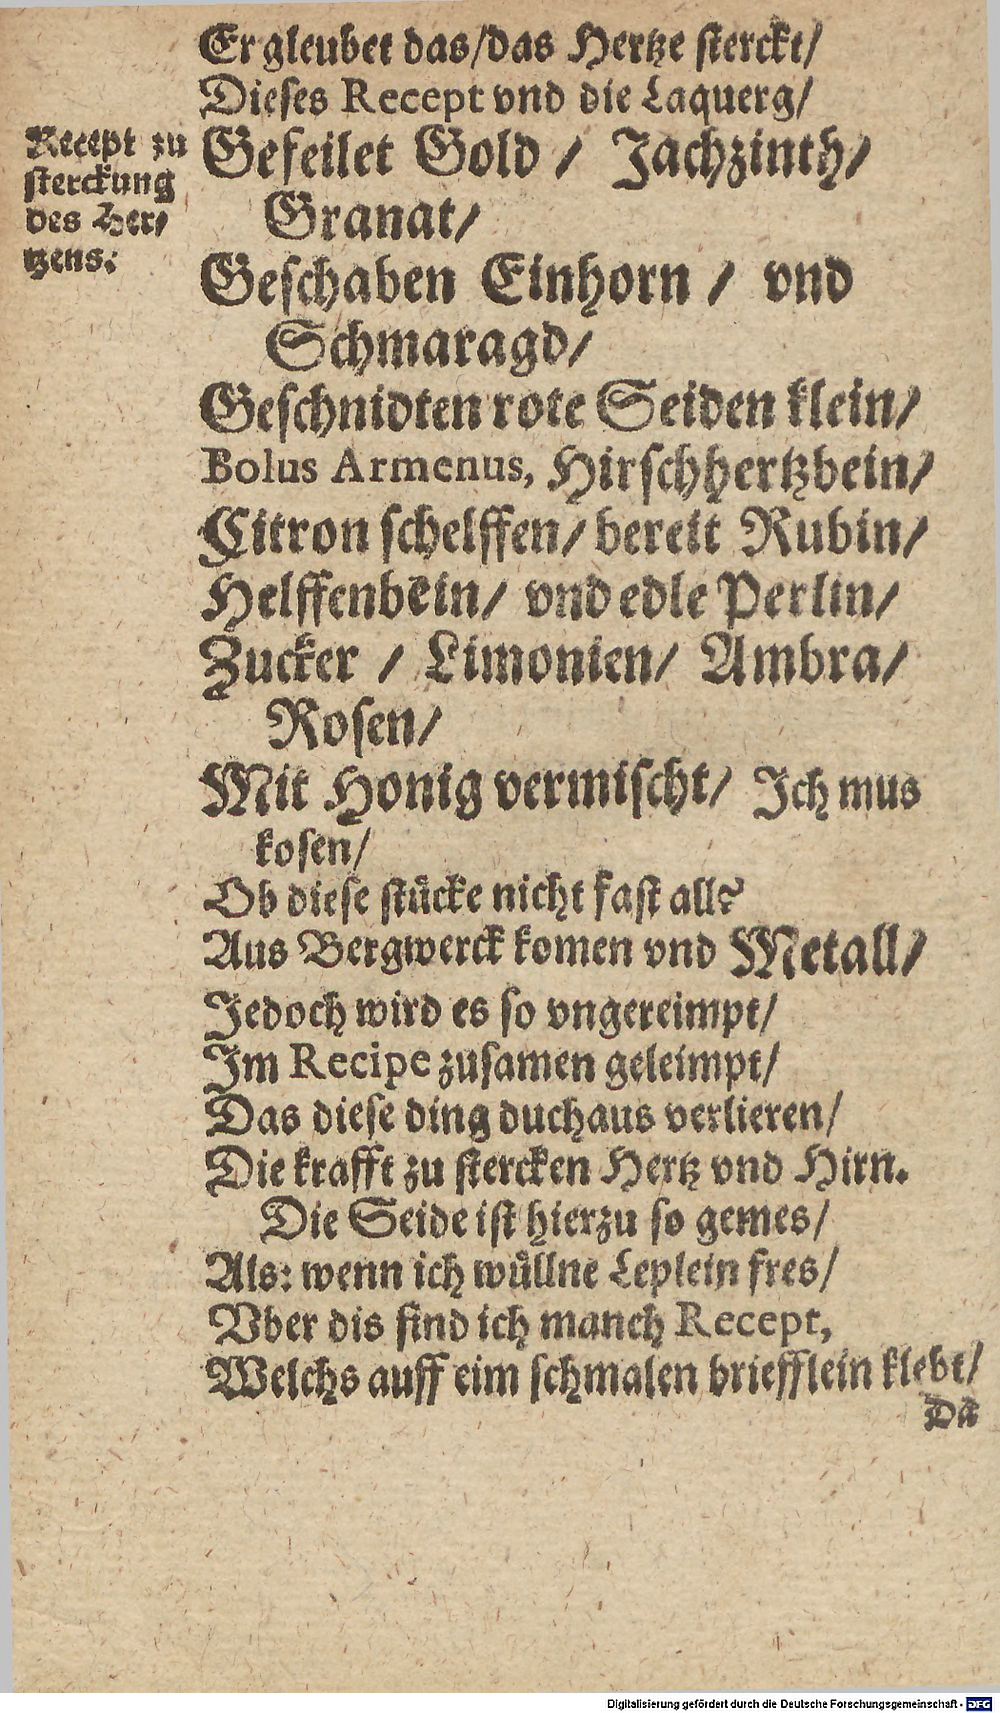 Er gleubet das/das Hertze sterckt/
Dieses Recept vnd die Laquerg/
Recept zu
sterckung
des Her/
tzens.
Gefeilet Gold / Jachzinth/
Granat/
Geschaben Einhorn / vnd
Schmaragd/
Geschnidten rote Seiden klein/
Bolus Armenus, Hirschhertzbein/
Citron schelffen/ bereit Rubin/
Helffenbein/ vnd edle Perlin/
Zucker / Limonien/ Ambra/
Rosen/
Mit Honig vermischt/ Ich mus
kosen/
Ob diese stücke nicht fast all?
Aus Bergwerck komen vnd Metall/
Jedoch wird es so vngereimpt/
Im Recipe zusamen geleimpt/
Das diese ding duchaus verlieren/
Die krafft zu stercken Hertz vnd Hirn.
Die Seide ist hierzu so gemes/
Als: wenn ich wüllne Leplein fres/
Vber dis find ich manch Recept,
Welchs auff eim schmalen briefflein klebt/
Da
Digitalisierung gefördert durch die Deutsche Forschungsgemeinschaft - DFG